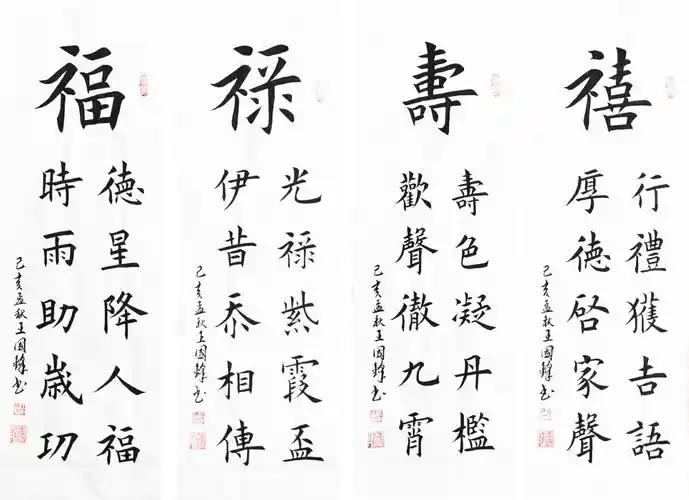 福
德星降人福
時雨助歲功
己亥孟秋王國鋒書
禄
光禄紫霞盃
伊昔忝相傳
己亥孟秋王國鋒書
壽
壽色凝丹檻
歡聲徹九霄
己亥孟秋王國鋒書
禧
行禮獲吉語
厚德启家聲
己亥孟秋王國鋒書